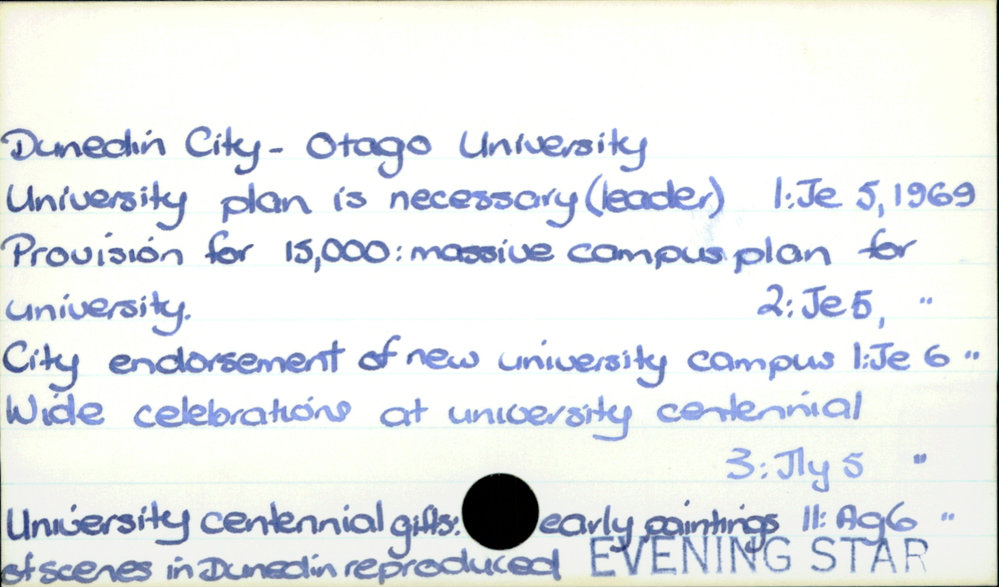 Dunedin City - Otago University
University plan is necessary (leader) 1: Je 5, 1969
Provision for 15,000: massive campus plan for
university. 2: Je 5, "
City endorsement of new university campus 1: Je 6 "
Wide celebrations at university centennial
3: Jly 5 "
University centennial gifts: early paintings 11: Ag 6 "
of scenes in Dunedin reproduced EVENING STAR